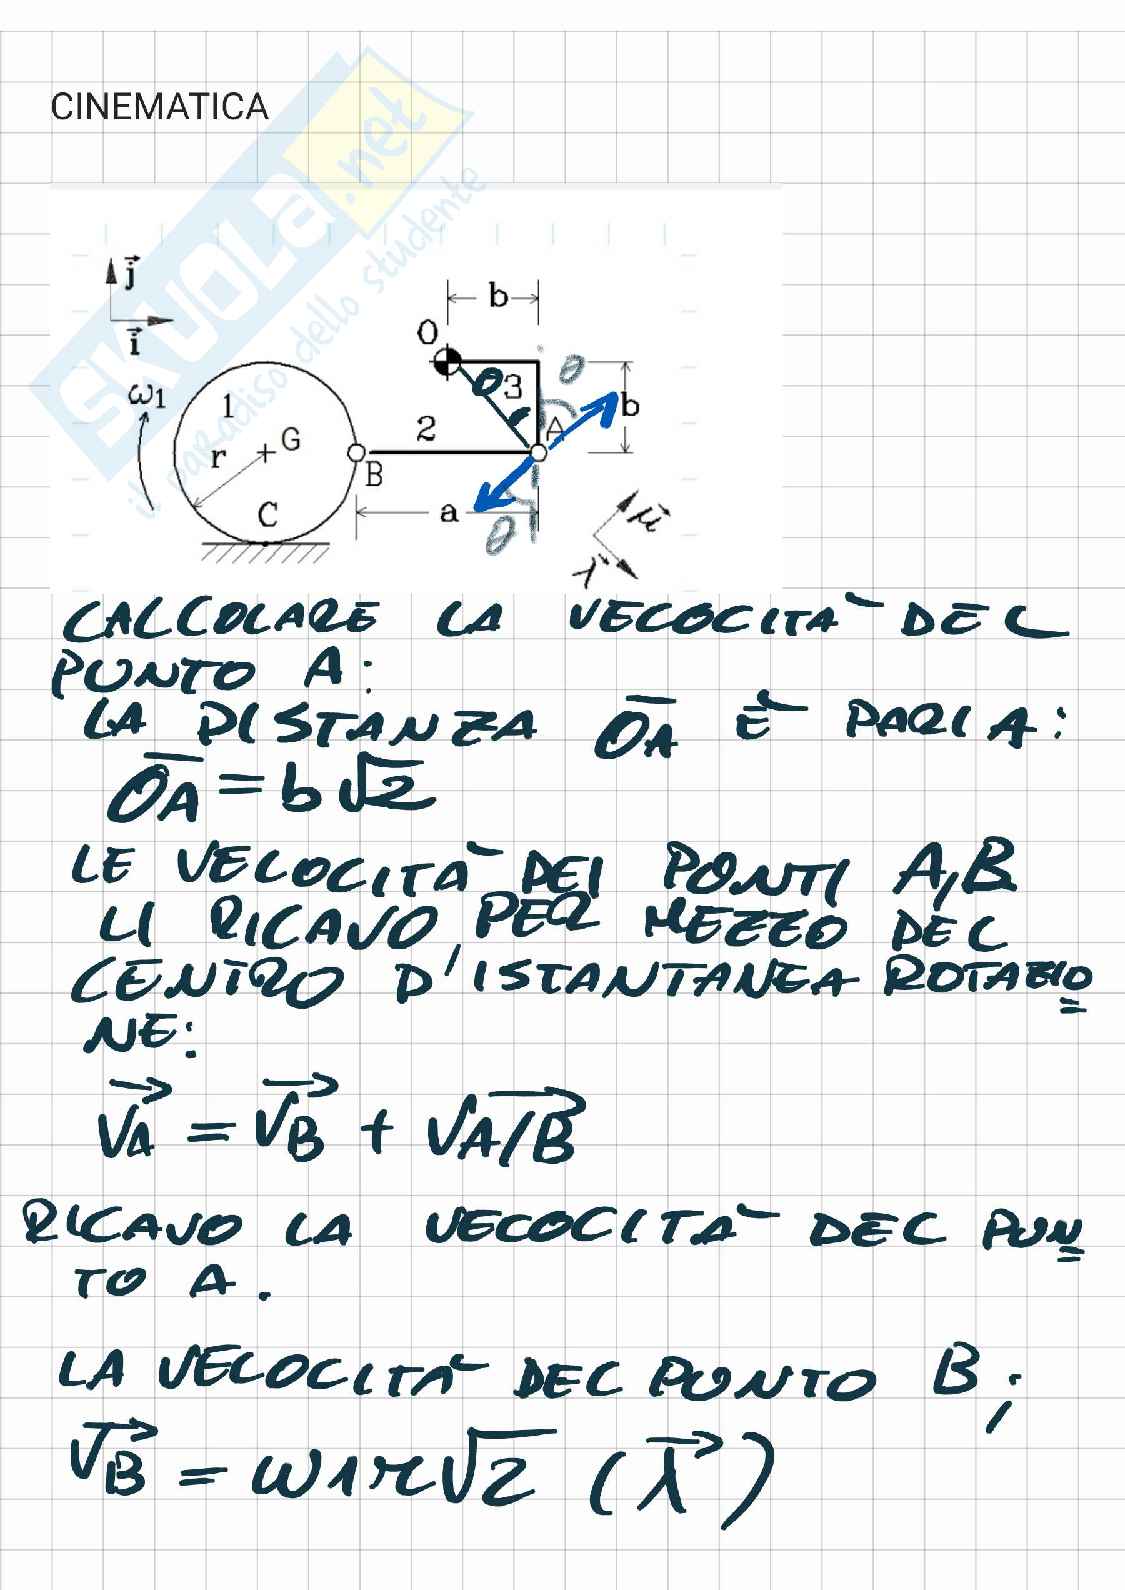 CINEMATICA
SKUOLA.net
il paradiso dello studente
j
i
b
O
θ
ω1
1
3
b
A
2
G
r
B
C
a
θ
μ
λ
CALCOLARE LA VELOCITÀ DEL
PUNTO A:
LA DISTANZA OA È PARI A:
OA = b√2
LE VELOCITÀ DEI PONTI A,B
LI RICAVO PER MEZZO DEL
CENTRO D'ISTANTANEA ROTAZIO
NE:
VA = VB + VA/B
RICAVO LA VELOCITÀ DEL PUN
TO A.
LA VELOCITÀ DEL PUNTO B;
VB = ω1r√2 (λ)